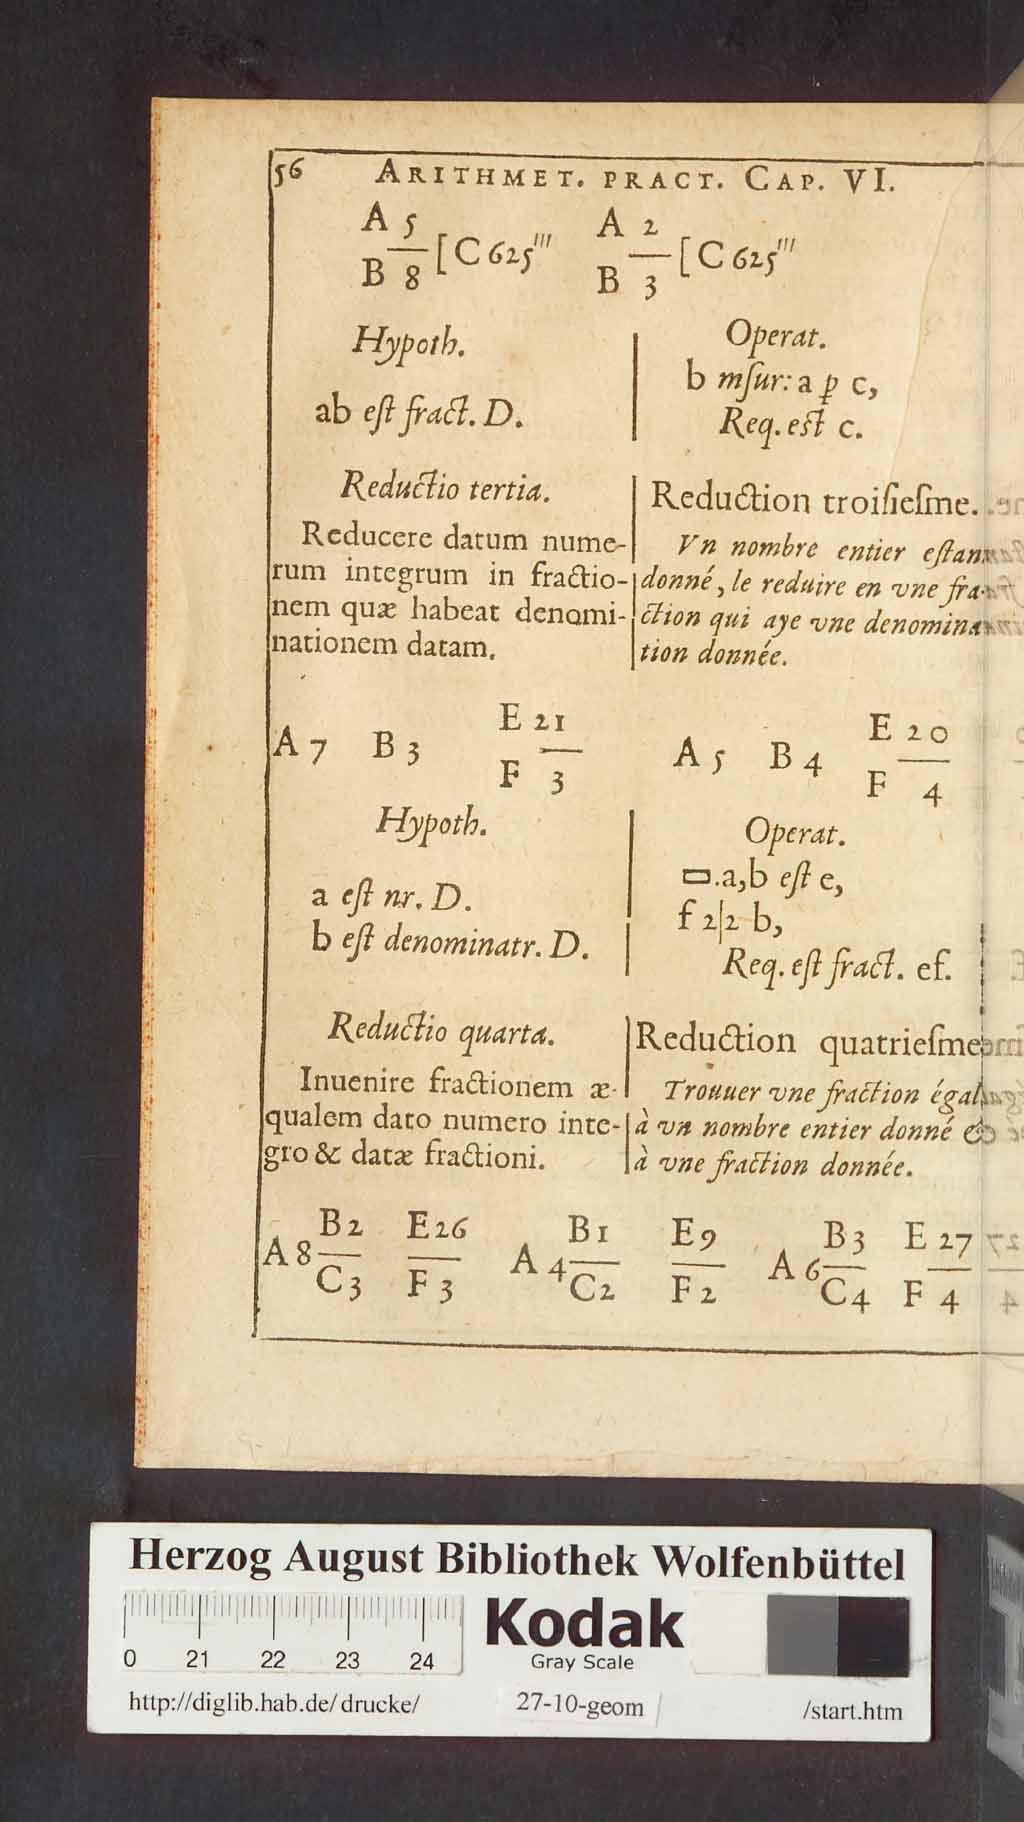 56 ARITHMET. PRACT. CAP. VI.
A 5 [C 625''' A 2 [C 625'''
B 8 B 3
Hypoth.
ab eſt fract. D.
Operat.
b mſur: a ꝑ c,
Req. eſt c.
Reductio tertia.
Reducere datum nume-
rum integrum in fractio-
nem quæ habeat denomi-
nationem datam.
Reduction troiſieſme.
Vn nombre entier eſtant
donné, le reduire en vne fra-
ction qui aye vne denomina-
tion donnée.
A 7 B 3 E 21
F 3
A 5 B 4 E 20
F 4
Hypoth.
a eſt nr. D.
b eſt denominatr. D.
Operat.
▭.a,b eſt e,
f 2|2 b,
Req. eſt fract. ef.
Reductio quarta.
Inuenire fractionem æ-
qualem dato numero inte-
gro & datæ fractioni.
Reduction quatrieſme
Trouuer vne fraction égale
à vn nombre entier donné &
à vne fraction donnée.
A 8 B 2 E 26 A 4 B 1 E 9 A 6 B 3 E 27
C 3 F 3 C 2 F 2 C 4 F 4
Herzog August Bibliothek Wolfenbüttel
Kodak
Gray Scale
0 21 22 23 24
http://diglib.hab.de/drucke/ 27-10-geom /start.htm